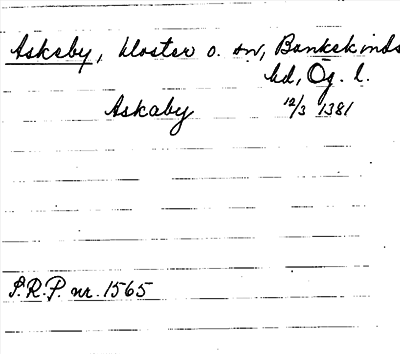 Askeby, kloster o. sn, Bankekinds
hd, Ög. l.
Askaby 12/3 1381
S.R.P. nr. 1565